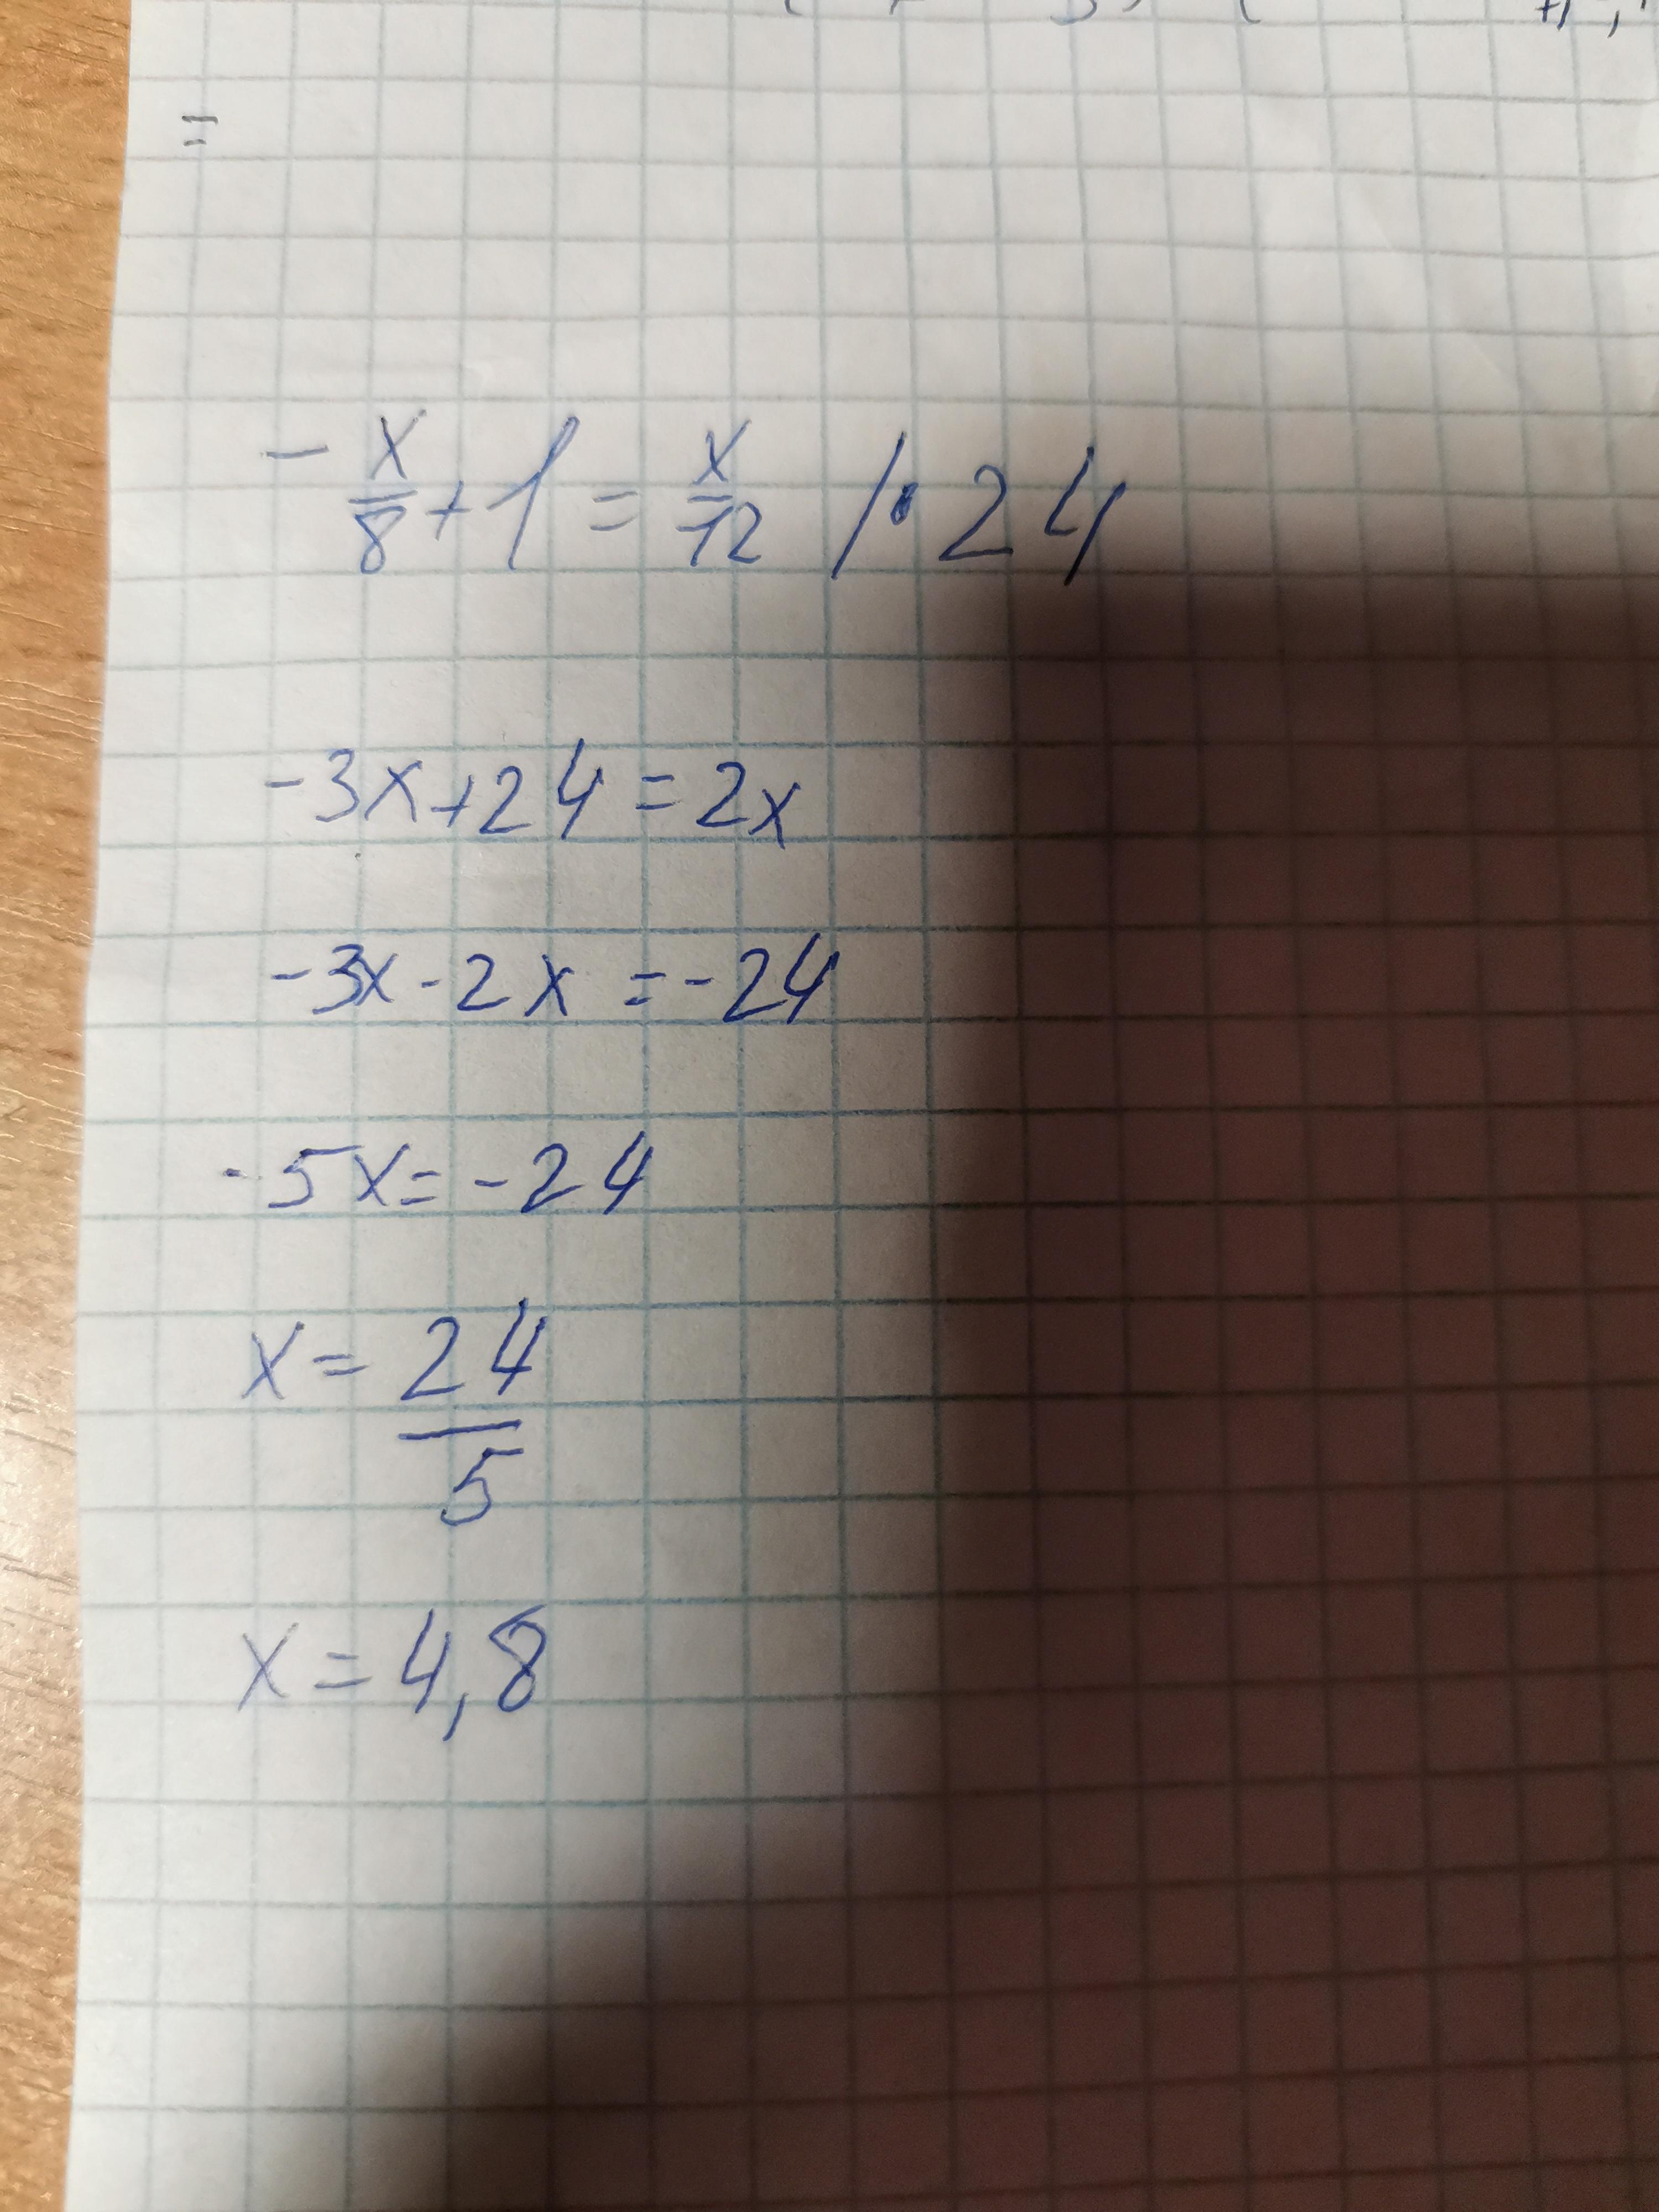 =
- x/8 + 1 = x/12 /· 24
-3x+24=2x
-3x-2x=-24
-5x=-24
x=24/5
x=4,8